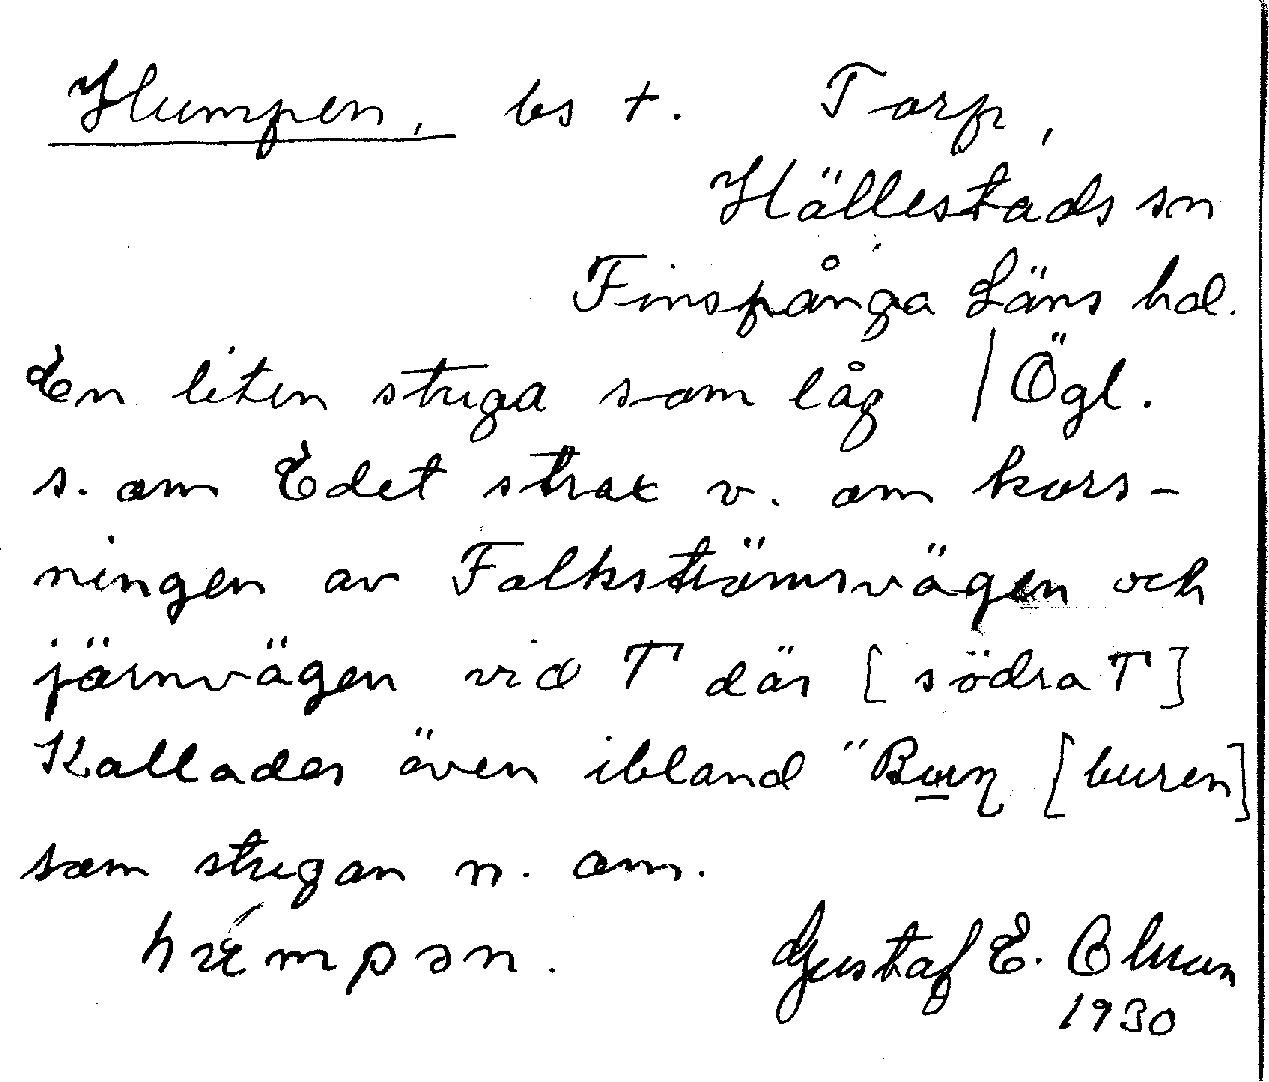 Humpen, bs t. Torp,
Hällestads sn
Finspånga Läns hd.
En liten stuga som låg / Ögl.
s. om Edet strax v. om kors-
ningen av Folkströmsvägen och
järnvägen vid T där [södra T]
Kallades även ibland "Burn [buren]
som stugan n. om.
humpən. Gustaf E.
1930